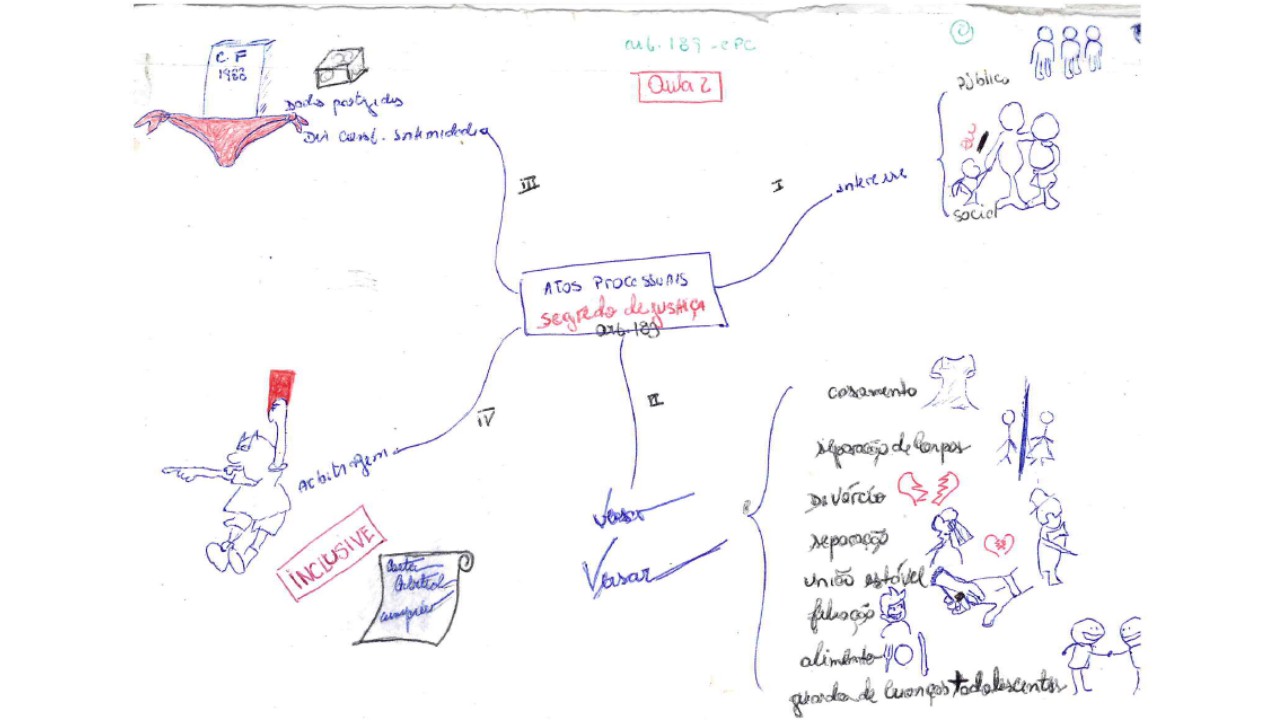 art. 189 - CPC
Aula 2
CF
1988
Dados protegidos
Dir Const. Intimidade
III
I
interesse
Público
social
Atos Processuais
segredo de justiça
art. 189
IV
Arbitragem
INCLUSIVE
Carta
Arbitral
II
Versar
Versar
casamento
separação de corpos
Divórcio
separação
união estável
filiação
alimento
guarda de crianças + adolescentes